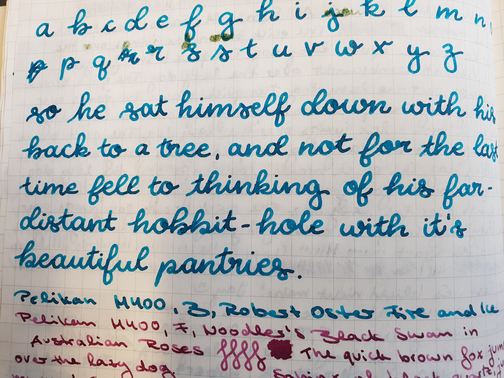 a b c d e f g h i j k l m n
p q r r s s t u v w x y z
so he sat himself down with his
back to a tree, and not for the last
time fell to thinking of his far-
distant hobbit-hole with it's
beautiful pantries.
Pelikan M400, B, Robert Oster Fire and Ice
Pelikan M400, F, Noodler's Black Swan in
Australian Roses The quick brown fox jum
over the lazy dog.